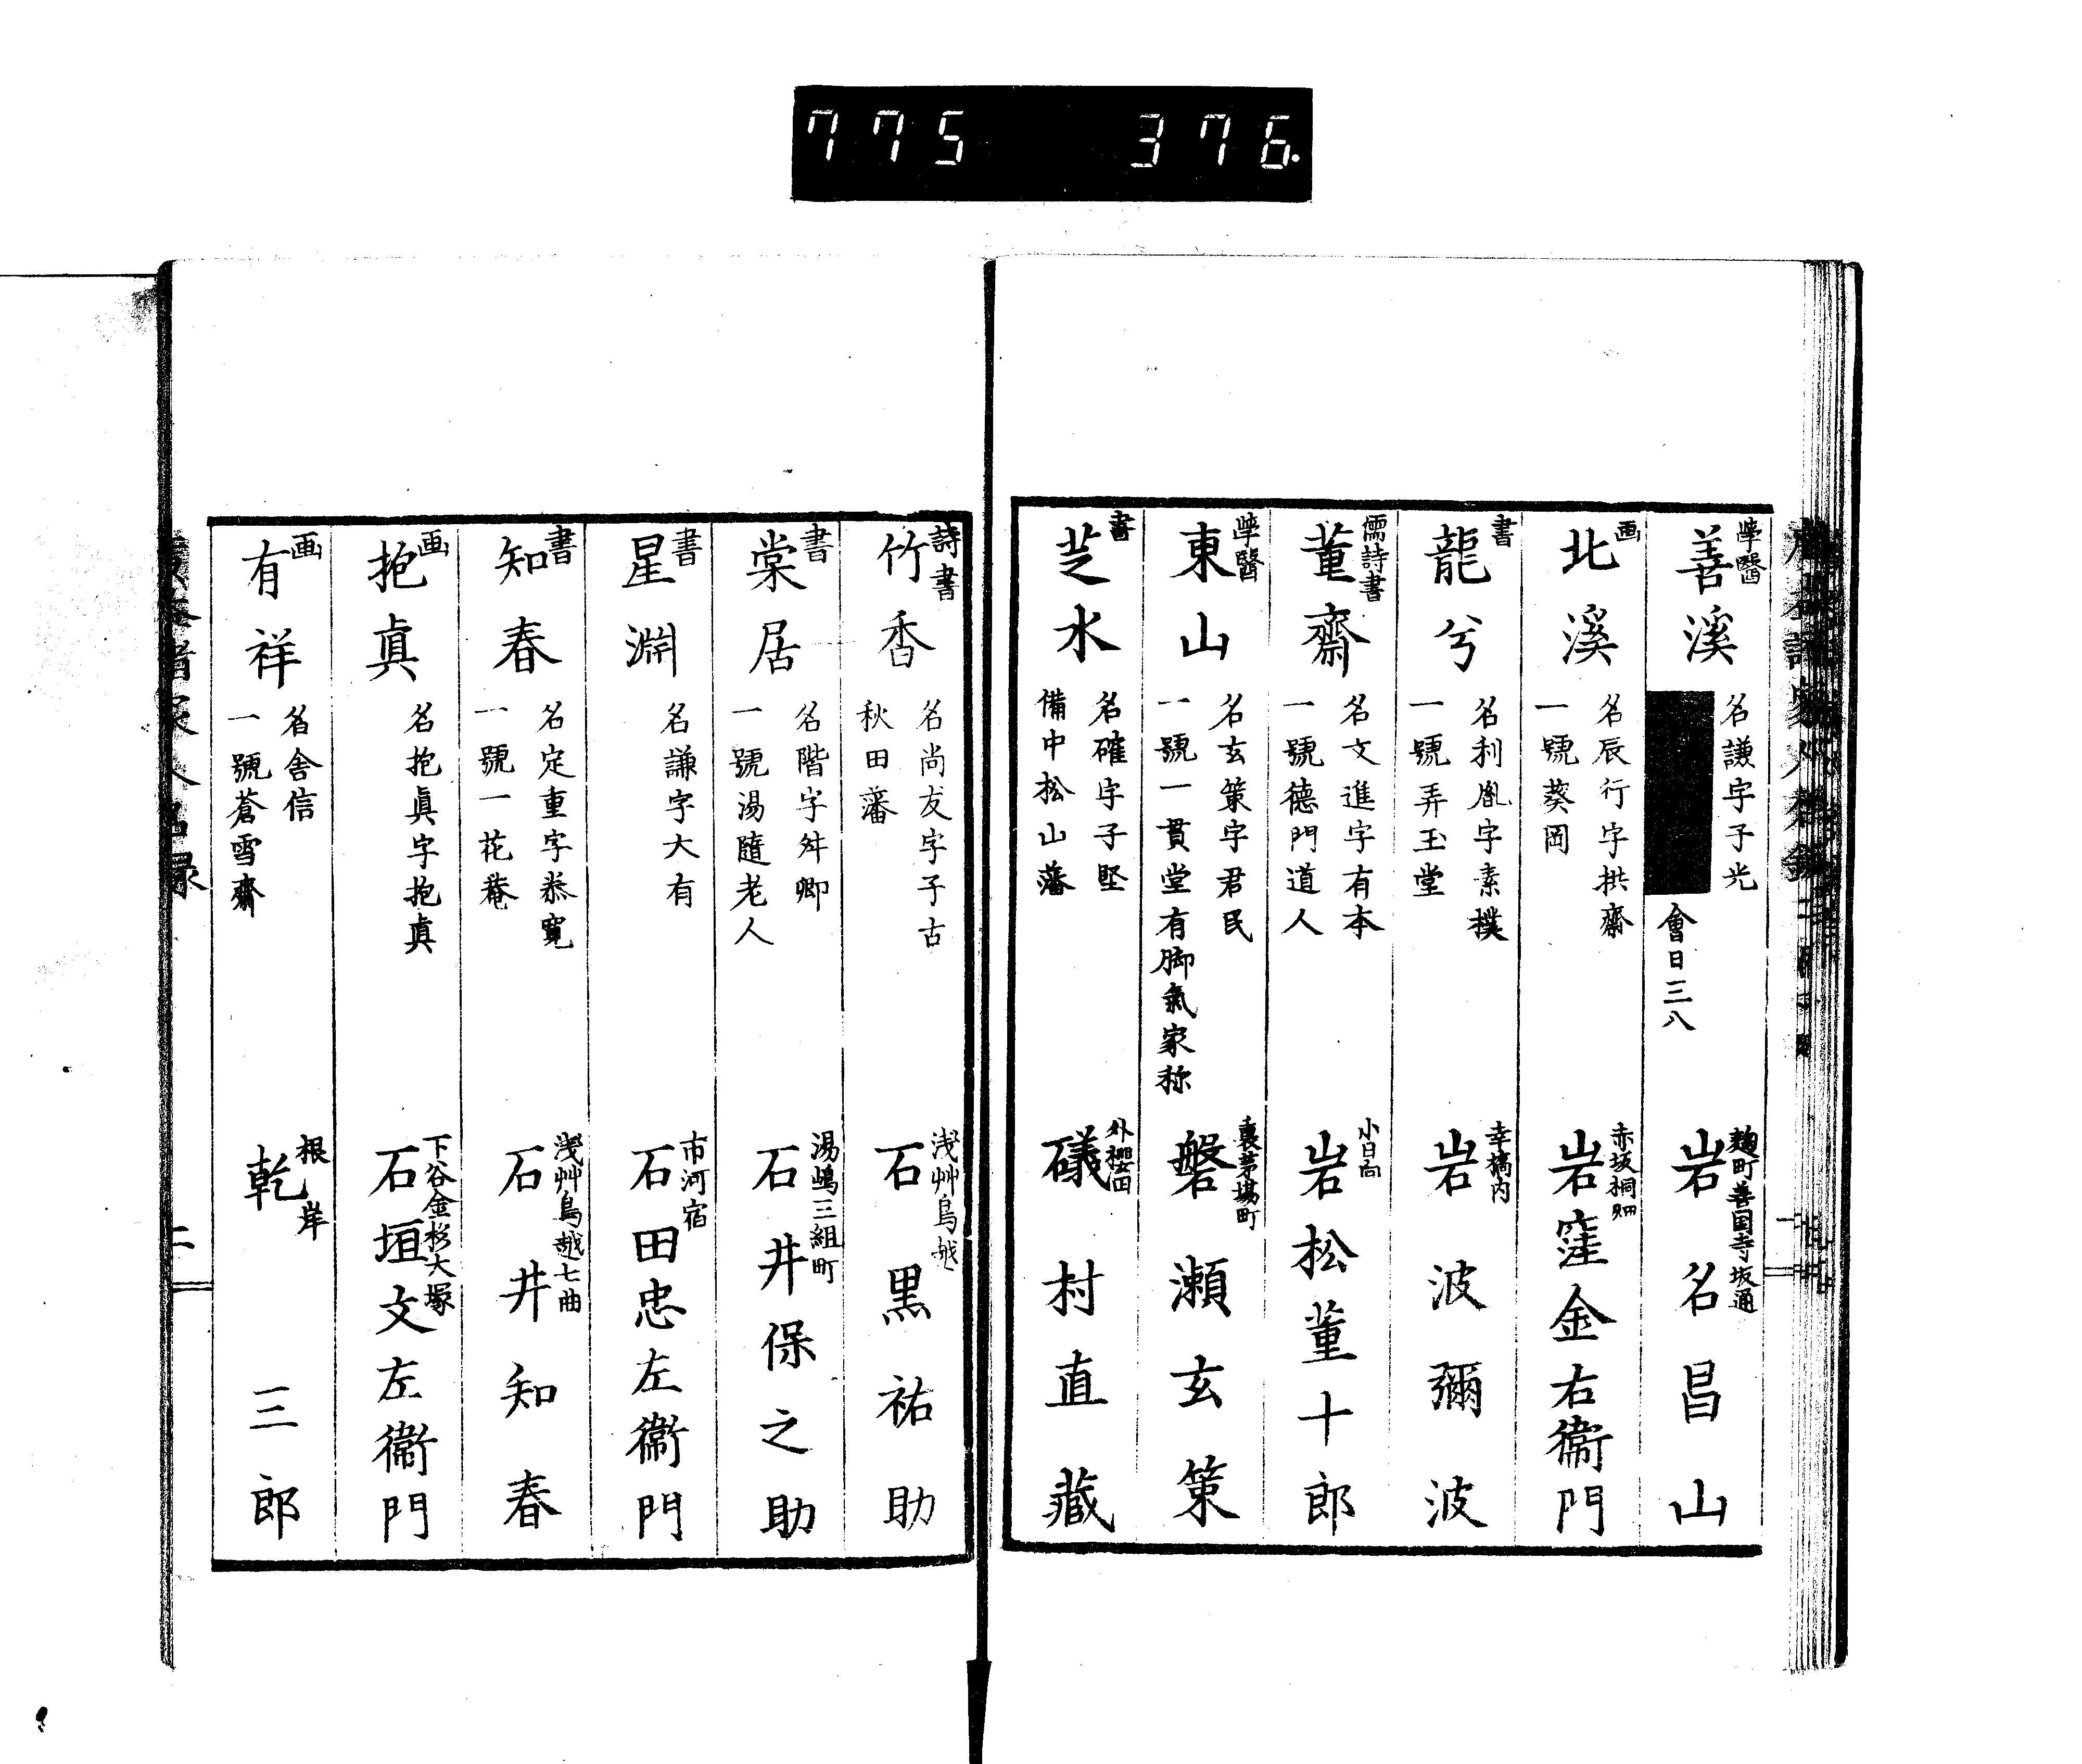 775 376.
學醫
善溪
名謙字子光
會日三八
麹町善国寺坂通
岩名昌山
画
北溪
名辰行字拱齋
一號葵岡
赤坂桐畑
岩窪金右衞門
書
龍兮
名利胤字素樸
一號弄玉堂
幸橋内
岩波彌波
儒詩書
董齋
名文進字有本
一號德門道人
小日向
岩松董十郎
學醫
東山
名玄策字君民
一號一貫堂有脚氣家称
裏茅場町
磐瀬玄策
書
芝水
名確字子堅
備中松山藩
外櫻田
礒村直藏
詩書
竹香
名尚友字子古
秋田藩
浅艸鳥越
石黒祐助
書
棠居
名階字舛卿
一號湯隨老人
湯嶋三組町
石井保之助
書
星淵
名謙字大有
市河宿
石田忠左衞門
書
知春
名定重字恭寛
一號一花菴
浅艸鳥越七曲
石井知春
画
抱眞
名抱眞字抱眞
下谷金杉大塚
石垣文左衞門
画
有祥
名舎信
一號蒼雪齋
根岸
乾三郎
二